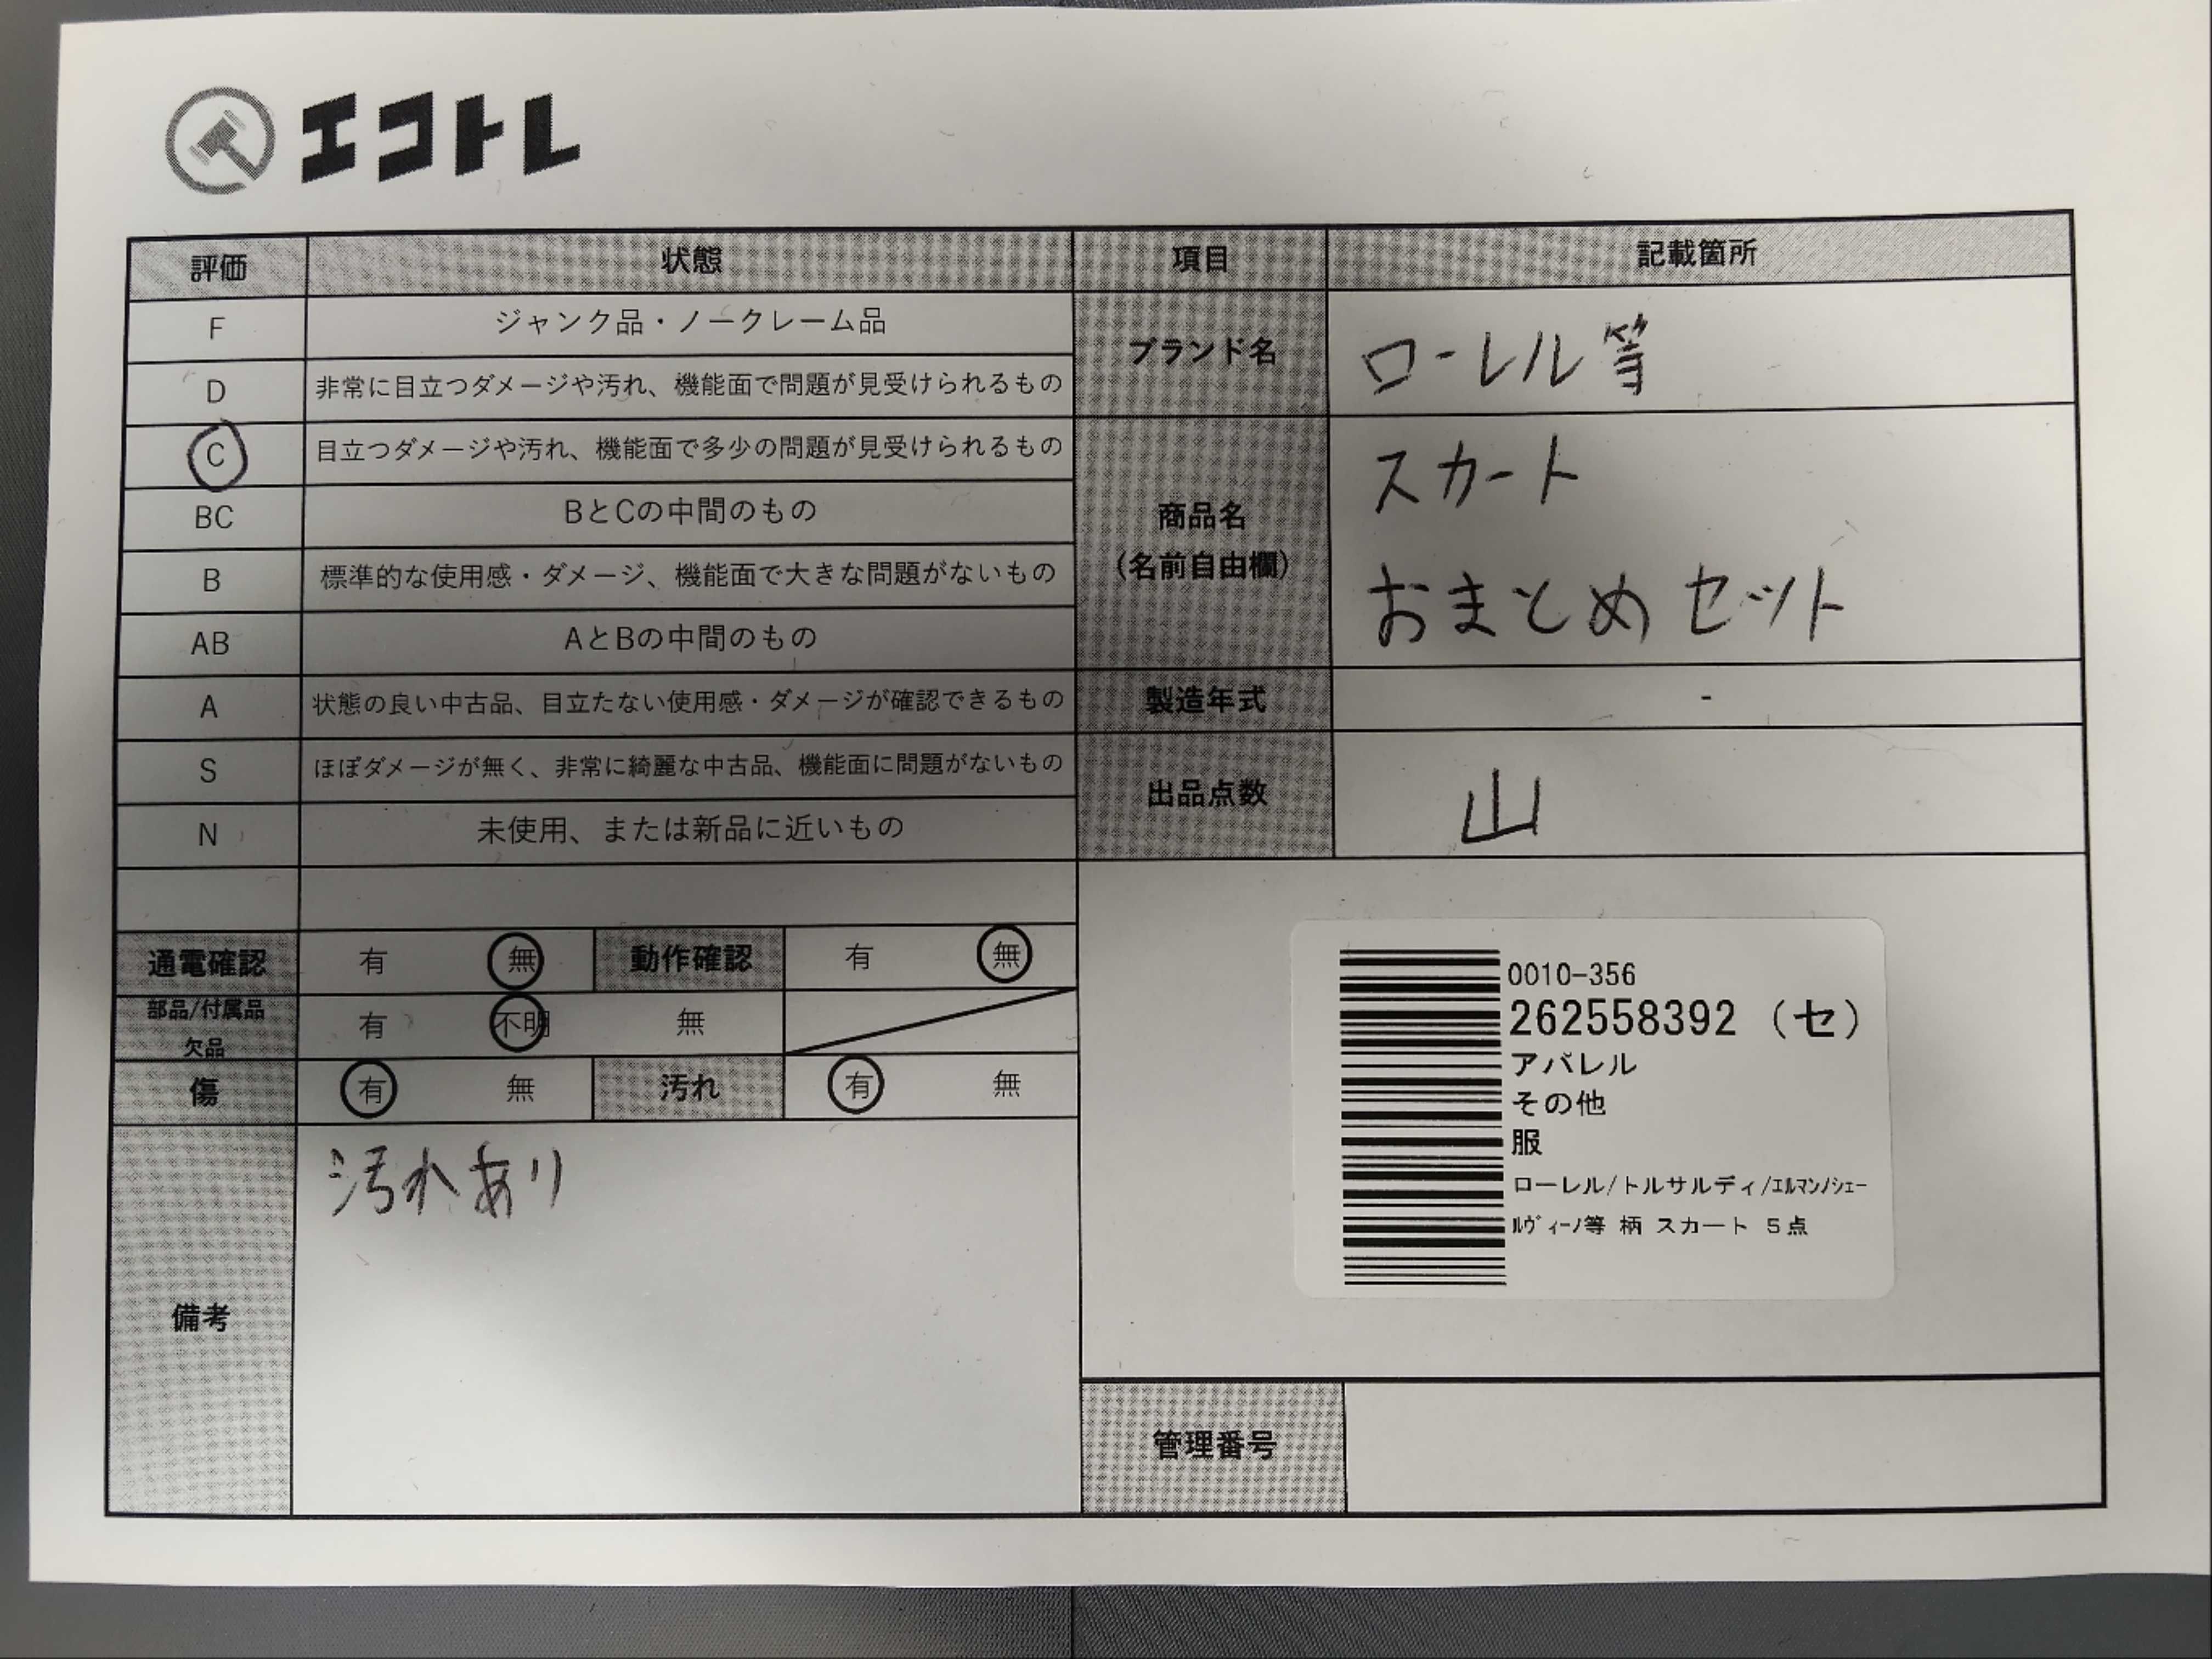 エコトレ
評価 状態 項目 記載箇所
F ジャンク品・ノークレーム品
D 非常に目立つダメージや汚れ、機能面で問題が見受けられるもの
C 目立つダメージや汚れ、機能面で多少の問題が見受けられるもの
BC BとCの中間のもの
B 標準的な使用感・ダメージ、機能面で大きな問題がないもの
AB AとBの中間のもの
A 状態の良い中古品、目立たない使用感・ダメージが確認できるもの
S ほぼダメージが無く、非常に綺麗な中古品、機能面に問題がないもの
N 未使用、または新品に近いもの
ブランド名 ローレル等
商品名
(名前自由欄)
スカート
おまとめセット
製造年式 -
出品点数 山
通電確認 有 無 動作確認 有 無
部品/付属品
欠品
有 不明 無
傷 有 無 汚れ 有 無
備考
汚れあり
0010-356
262558392 (セ)
アパレル
その他
服
ローレル/トルサルディ/エルマンノシェー
ルヴィーノ等 柄 スカート 5点
管理番号